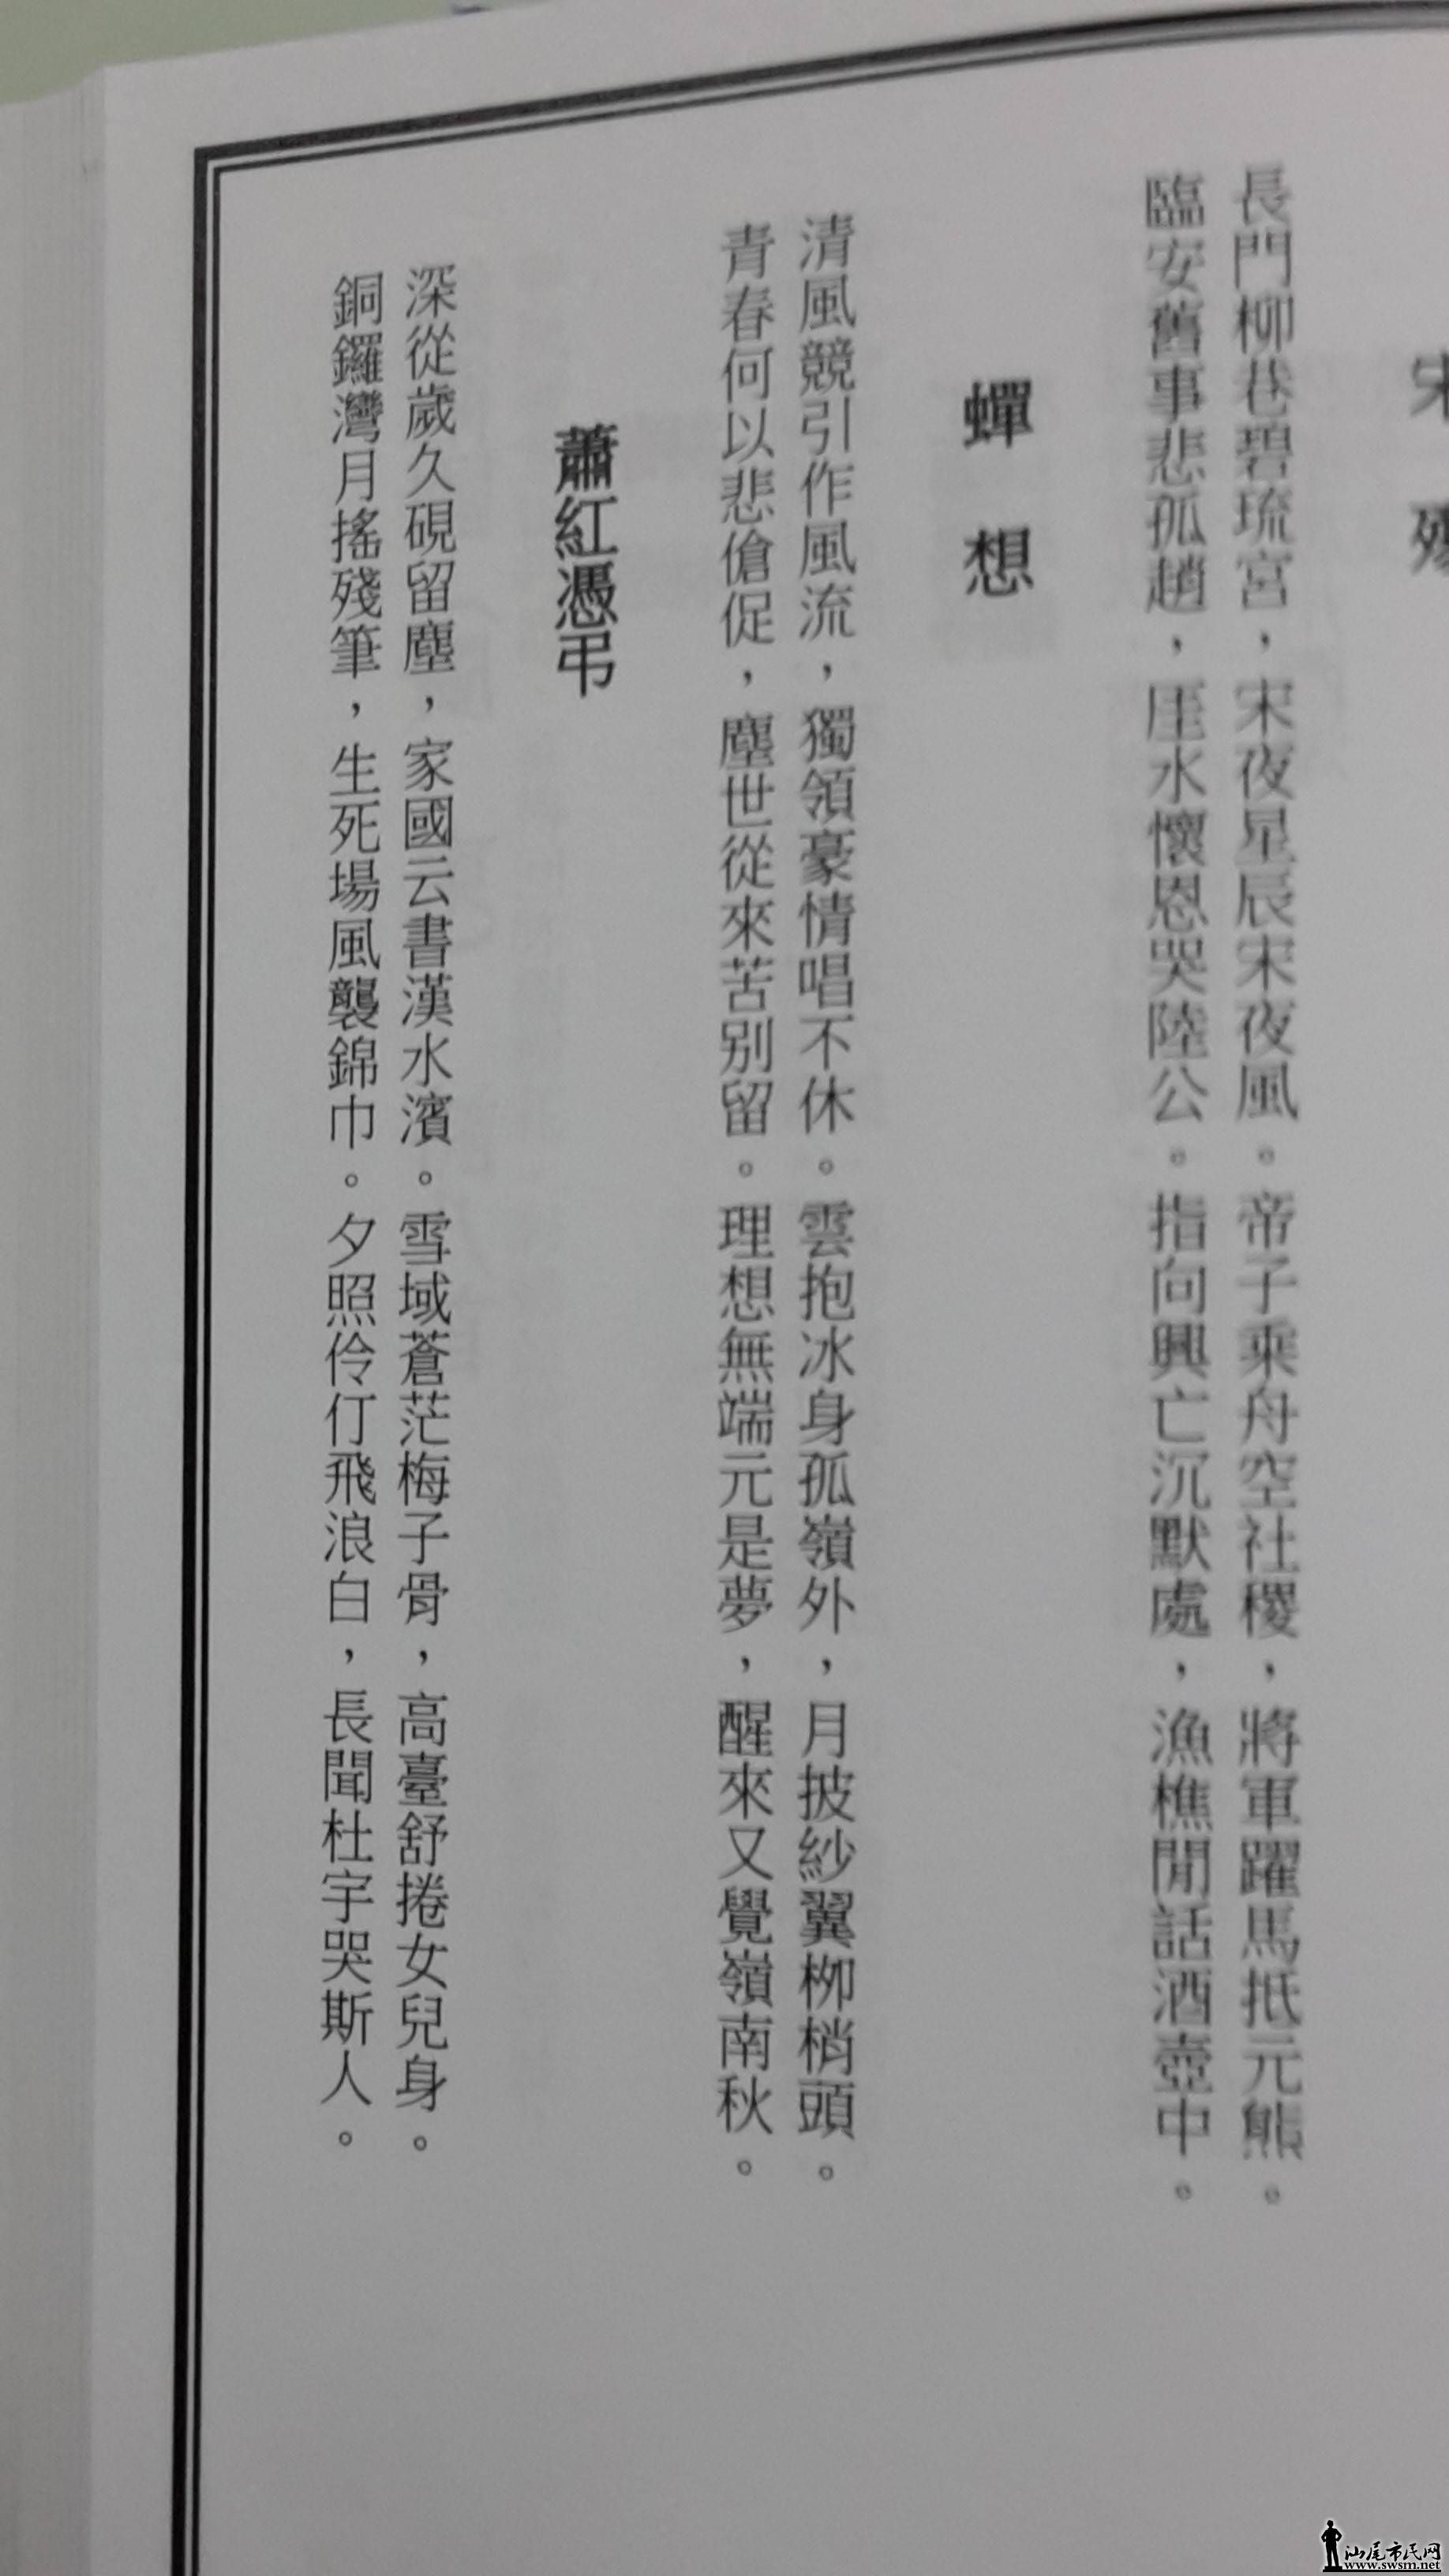 宋
長門柳巷碧琉宮，宋夜星辰宋夜風。帝子乘舟空社稷，將軍躍馬抵元熊。
臨安舊事悲孤趙，厓水懷恩哭陸公。指向興亡沉默處，漁樵閒話酒壺中。
蟬想
清風競引作風流，獨領豪情唱不休。雲抱冰身孤嶺外，月披紗翼柳梢頭。
青春何以悲傖促，塵世從來苦別留。理想無端元是夢，醒來又覺嶺南秋。
蕭紅憑弔
深從歲久硯留塵，家國云書漢水濱。雪域蒼茫梅子骨，高臺舒捲女兒身。
銅鑼灣月搖殘筆，生死場風襲錦巾。夕照伶仃飛浪白，長聞杜宇哭斯人。
汕尾市民网
www.swsm.net